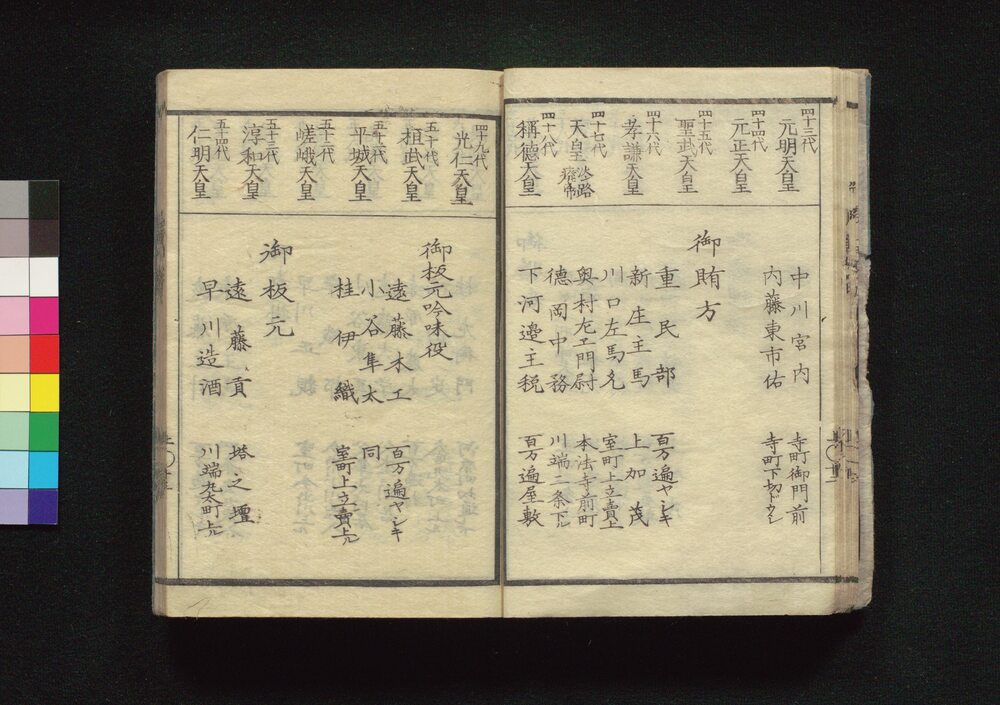 四十三代
元明天皇
四十四代
元正天皇
四十五代
聖武天皇
四十六代
孝謙天皇
四十七代
天皇
淡路
廢帝
四十八代
稱德天皇
中川宮内
寺町御門前
内藤東市佑
寺町下切ドウシ
御賄方
重民部
百万遍ヤシキ
新庄主馬
上加茂
川口左馬允
室町上立賣上
奥村左エ門尉
本法寺前町
德岡中務
川端二条下ル
下河邉主税
百万遍屋敷
四十九代
光仁天皇
五十代
桓武天皇
五十一代
平城天皇
五十二代
嵯峨天皇
五十三代
淳和天皇
五十四代
仁明天皇
御板元吟味役
遠藤木工
百万遍ヤシキ
小谷隼太
同
桂伊織
室町上立賣上ル
御板元
遠藤貢
塔之壇
早川造酒
川端丸太町上ル